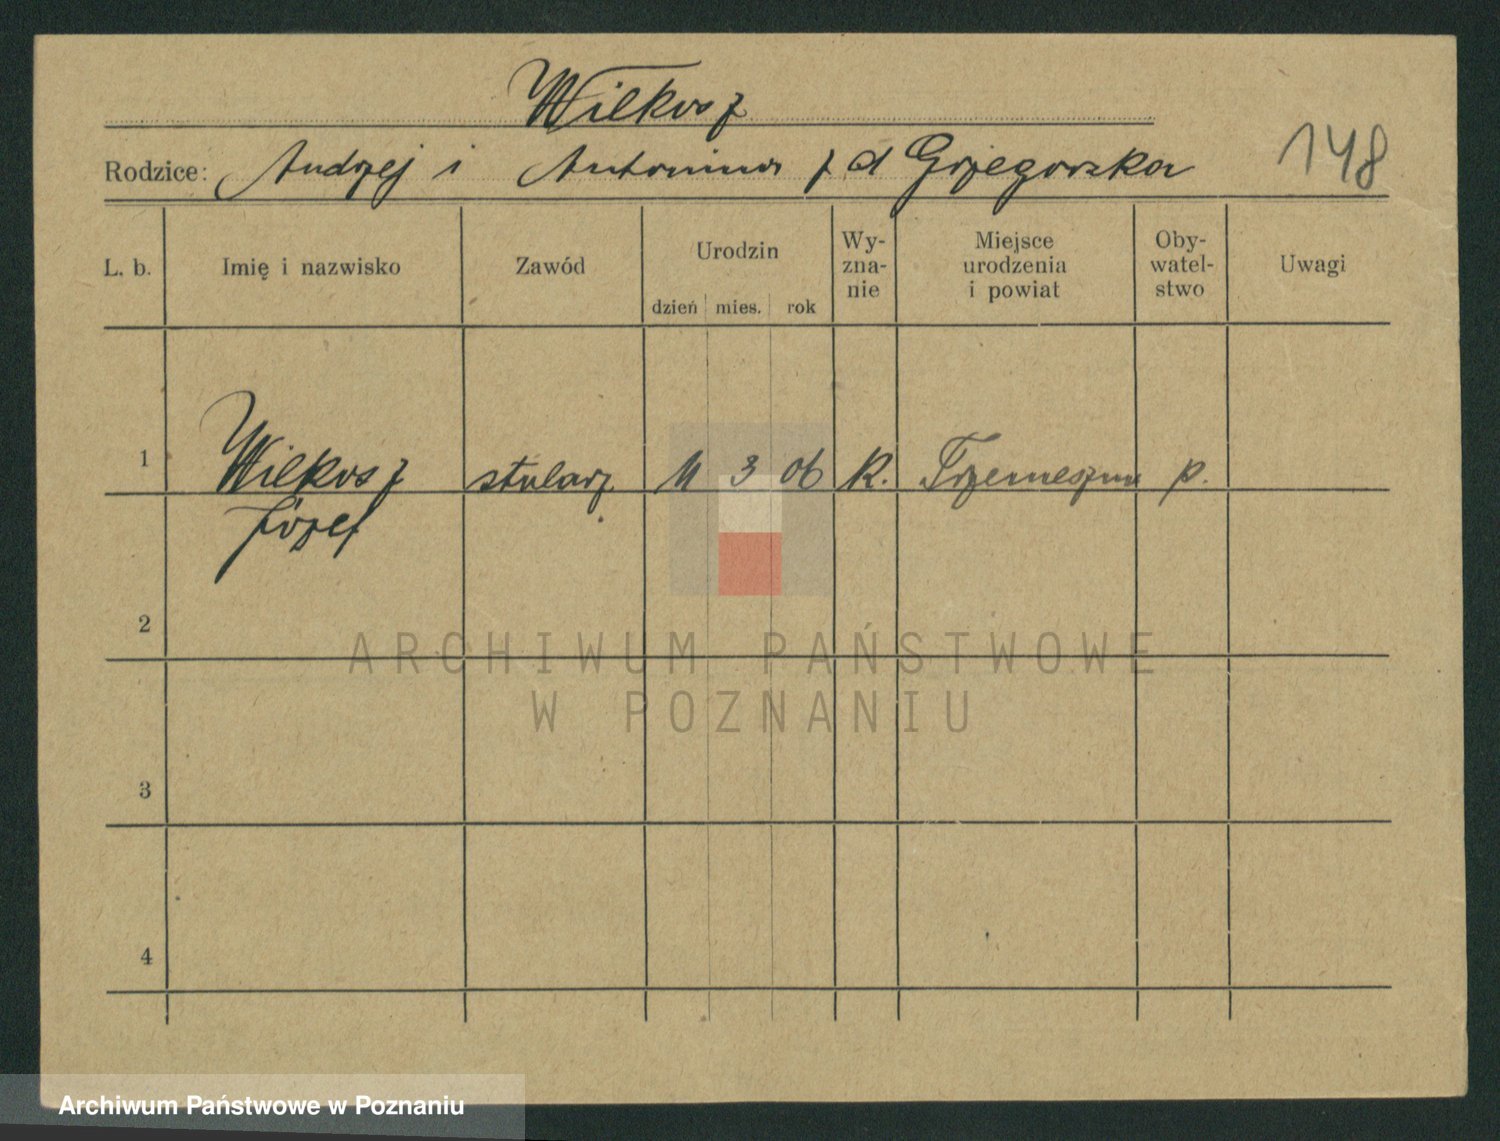 Wilkosz
Rodzice: Andrzej i Antonina z d Grzegorska 148
L. b. Imię i nazwisko Zawód Urodzin dzień mies. rok Wy-zna-nie Miejsce urodzenia i powiat Oby-watel-stwo Uwagi
1 Wilkosz stolarz 11 3 06 R. Trzemeszno p.
Józef
2
3
4
ARCHIWUM PAŃSTWOWE
W POZNANIU
Archiwum Państwowe w Poznaniu